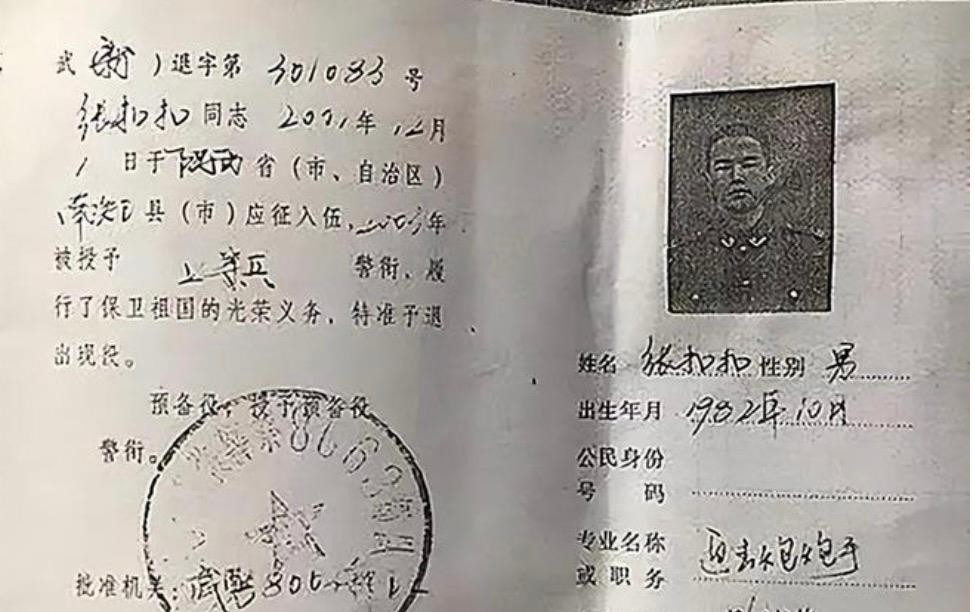 武（新）退字第 401083 号
张扣扣同志 2001年 12月
1 日于陕西省（市、自治区）
南郑县（市）应征入伍，2003年
被授予 上等兵 警衔，履
行了保卫祖国的光荣义务，特准予退
出现役。
预备役，授予预备役
警衔。
批准机关：
姓名 张扣扣 性别 男
出生年月 1982年10月
公民身份
号 码
专业名称 迫击炮炮手
或职务